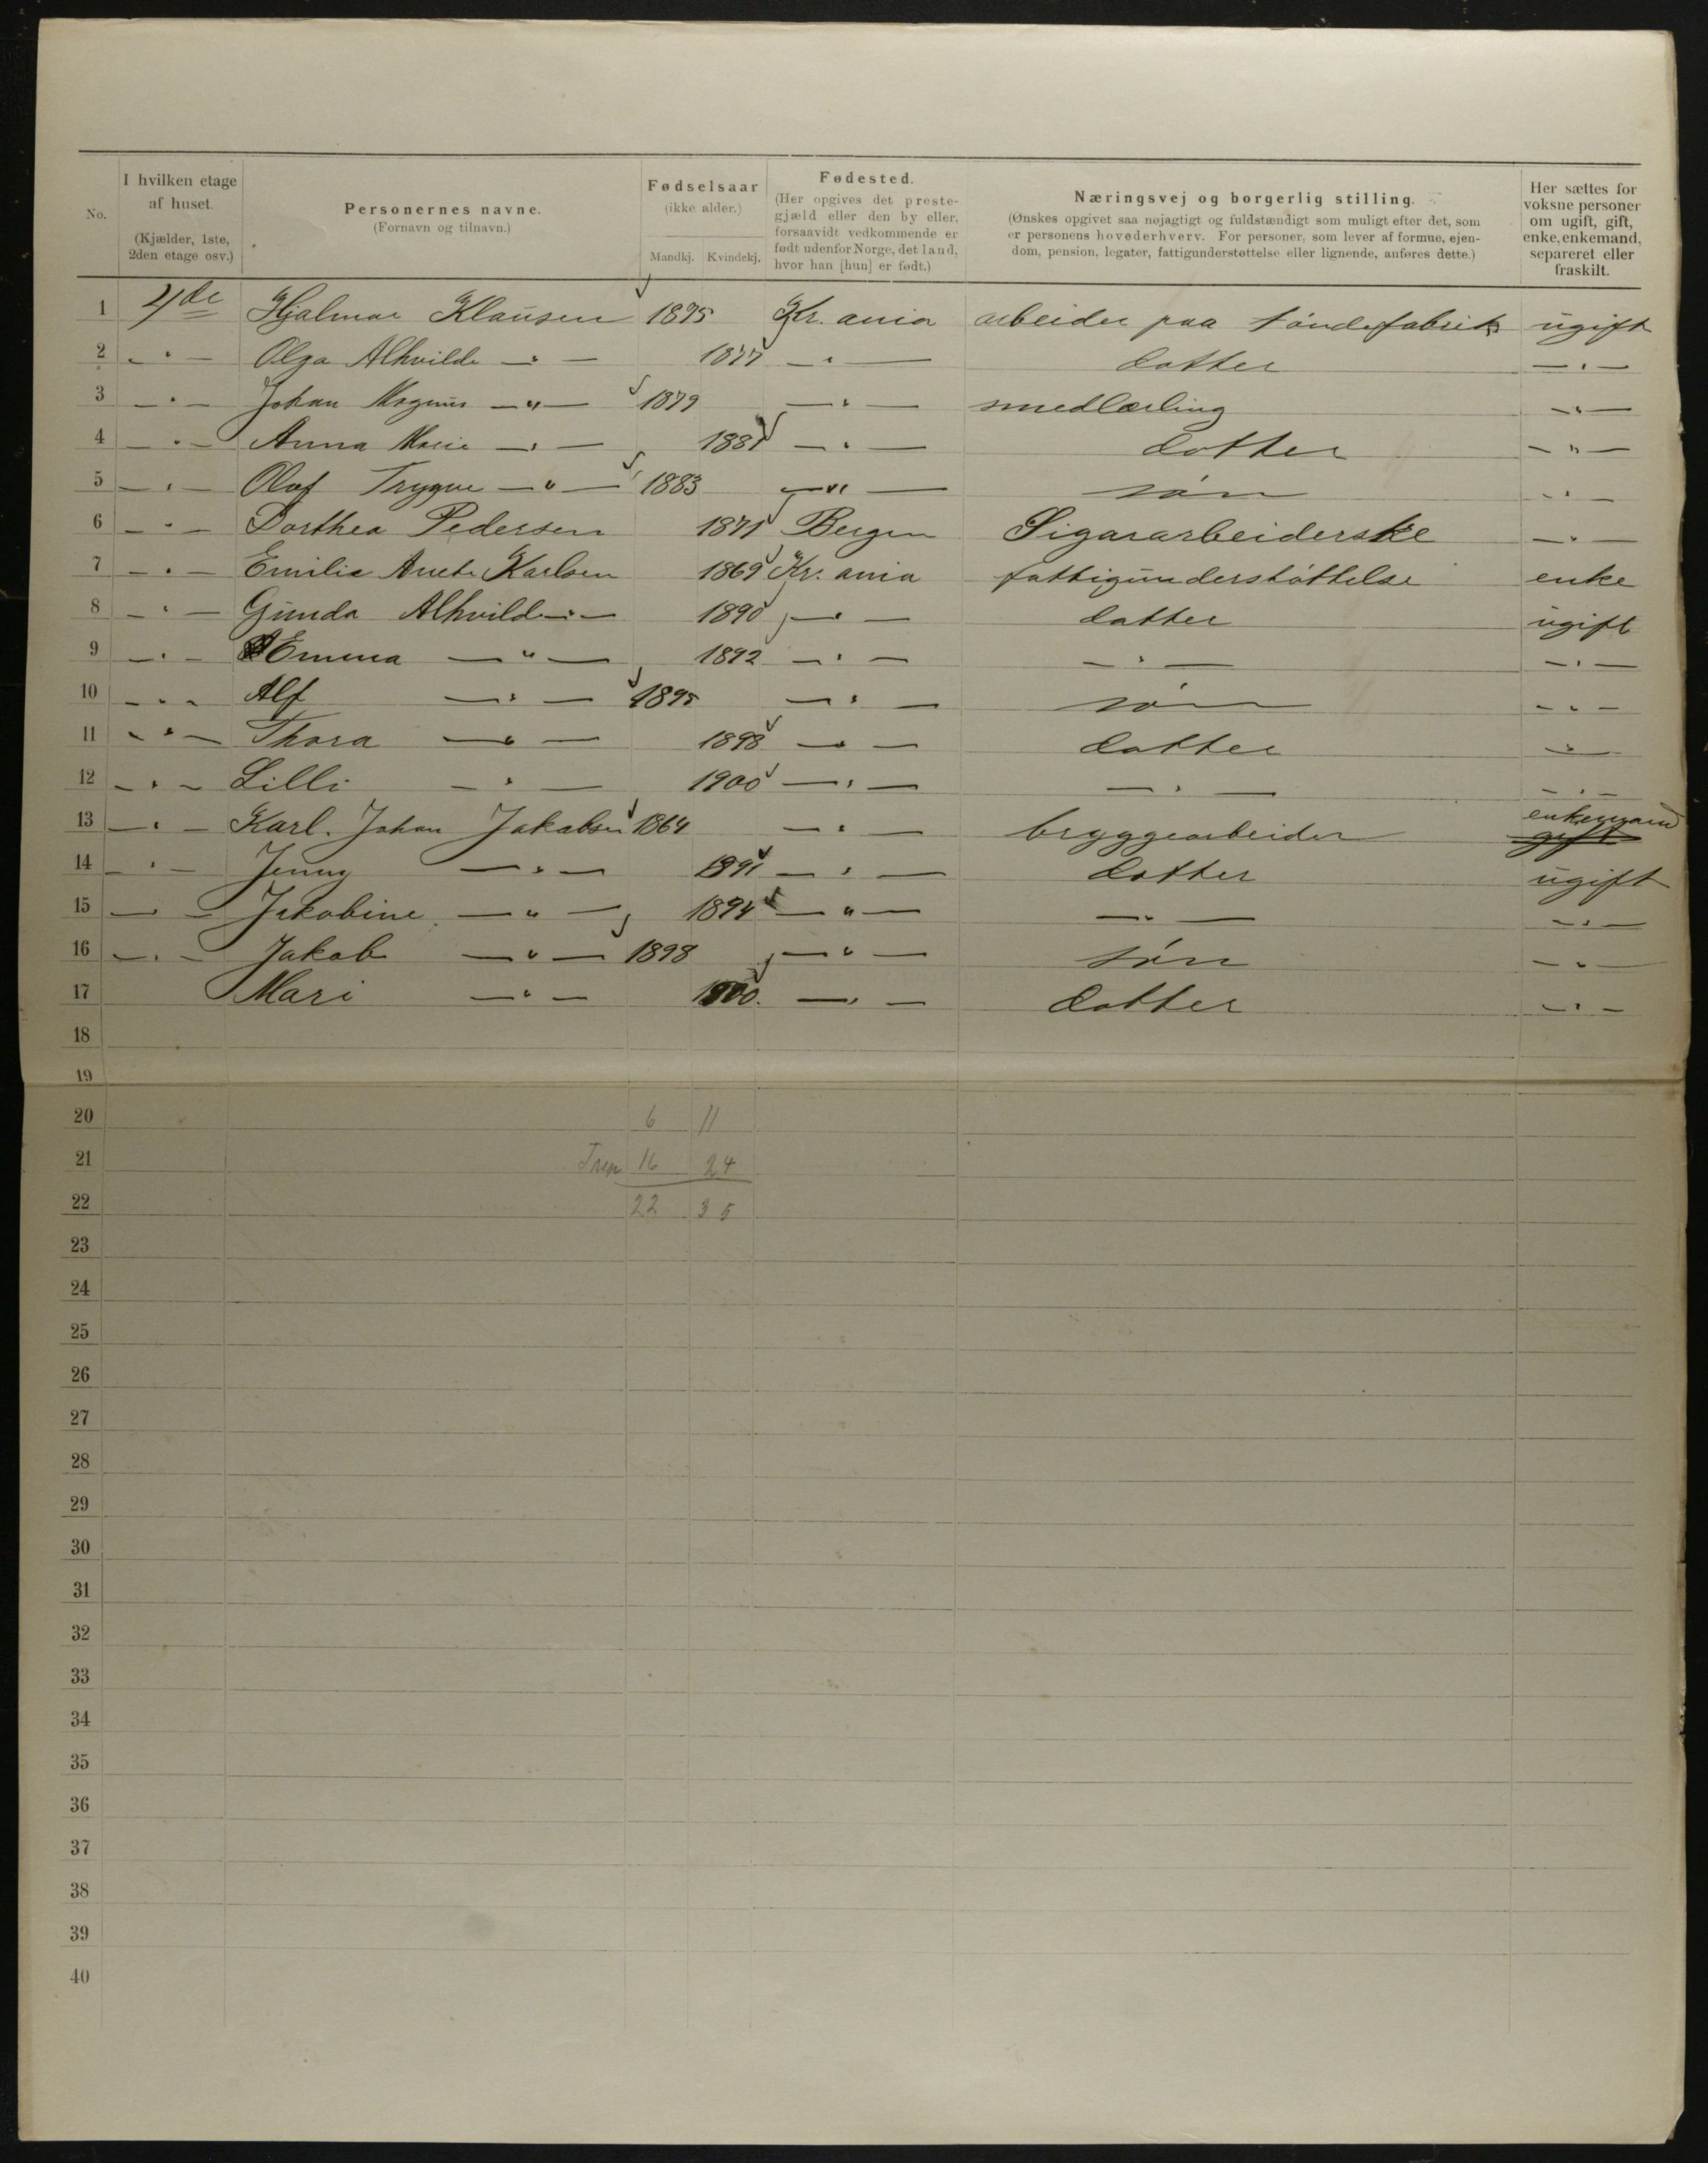 No.
I hvilken etage af huset. (Kjælder, 1ste, 2den etage osv.)
Personernes navne. (Fornavn og tilnavn.)
Fødselsaar (ikke alder.) Mandkj. Kvindekj.
Fødested. (Her opgives det prestegjæld eller den by eller, forsaavidt vedkommende er født udenfor Norge, det land, hvor han [hun] er født.)
Næringsvej og borgerlig stilling. (Ønskes opgivet saa nøjagtigt og fuldstændigt som muligt efter det, som er personens hovederhverv. For personer, som lever af formue, ejendom, pension, legater, fattigunderstøttelse eller lignende, anføres dette.)
Her sættes for voksne personer om ugift, gift, enke, enkemand, separeret eller fraskilt.
1 4de Hjalmar Klausen 1875 Kr. ania arbeider paa tøndefabrik ugift
2 — " — Olga Alhvilde — " — 1877 — " — datter — " —
3 — " — Johan Magnus — " — 1879 — " — smedlærling — " —
4 — " — Anna Marie — " — 1881 — " — datter — " —
5 — " — Olaf Trygve — " — 1883 — " — søn — " —
6 — " — Dorthea Pedersen 1871 Bergen Sigararbeiderske — " —
7 — " — Emilie Anette Karlsen 1869 Kr. ania fattigunderstøttelse enke
8 — " — Gunda Alhvilde — " — 1890 — " — datter ugift
9 — " — Emma — " — 1892 — " — — " — — " —
10 — " — Alf — " — 1895 — " — søn — " —
11 — " — Thora — " — 1898 — " — datter — " —
12 — " — Lilli — " — 1900 — " — — " — — " —
13 — " — Karl. Johan Jakobsen 1864 — " — bryggearbeider enkemand gift
14 — " — Jenny — " — 1891 — " — datter ugift
15 — " — Jakobine — " — 1894 — " — — " — — " —
16 — " — Jakob — " — 1898 — " — søn — " —
17 Mari — " — 1900. — " — datter — " —
18
19
20 6 11
21 16 24
22 22 35
23
24
25
26
27
28
29
30
31
32
33
34
35
36
37
38
39
40